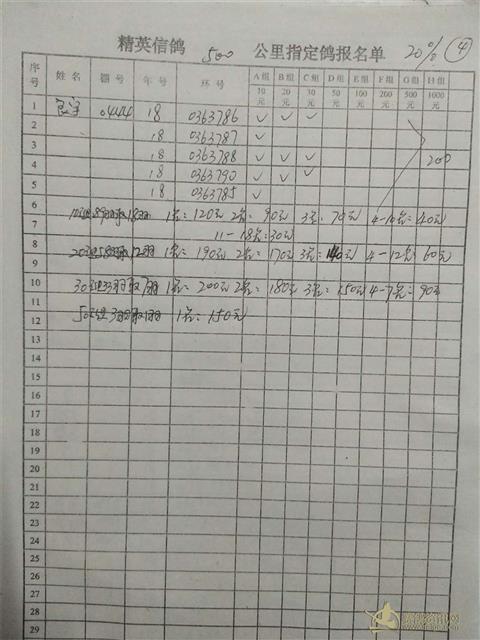 精英信鸽 500 公里指定鸽报名单 20% ④
序号 姓名 棚号 年号 环号 A组 B组 C组 D组 E组 F组 G组 H组
10元 20元 30元 50元 100元 200元 500元 1000元
1 0444 18 0363786 ✓ ✓ ✓
2 18 0363787 ✓
3 18 0363788 ✓ ✓ ✓ 200
4 18 0363790 ✓ ✓ ✓
5 18 0363785 ✓
6 10元组89羽取18羽 1名:120元 2名:90元 3名:70元 4-10名:40元
7 11-18名:30元
8 20元组58羽取12羽 1名:190元 2名:170元 3名:140元 4-12名:60元
9
10 30元组33羽取7羽 1名:200元 2名:180元 3名:150元 4-7名:90元
11 50元组3羽取1羽 1名:150元
12
13
14
15
16
17
18
19
20
21
22
23
24
25
26
27
28
29